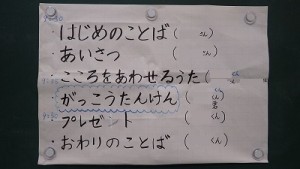 ・はじめのことば( さん)
・あいさつ ( さん)
・こころをあわせるうた(
・がっこうたんけん(
・プレゼント ( くん)
・おわりのことば( くん)